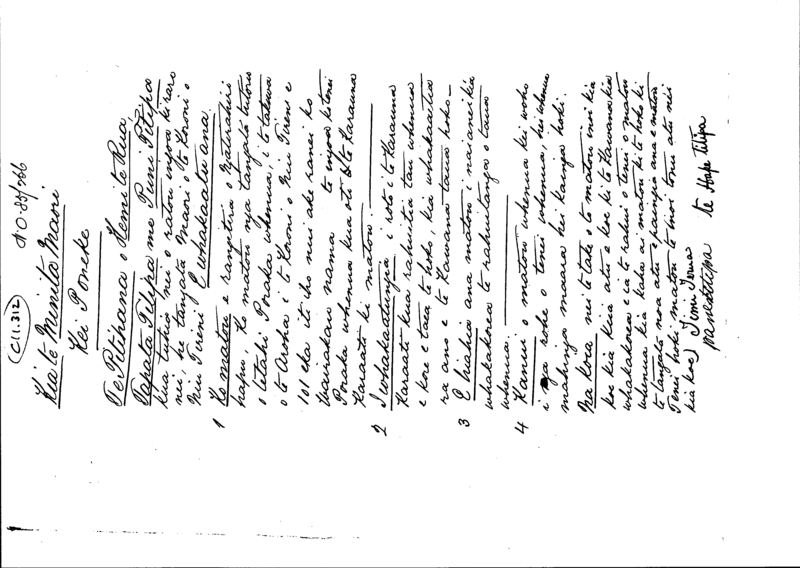 (C11.312)
N.O. 85/266
Kia te Minita Maori
Kei Poneke
Te Pitihana o Hemi te Rua,
Tapata Tilipa me Puni Pitipa
kua tuhia nei o ratou ingoa ki raro
nei, he tangata Maori o te Koroni o
Niu Tireni E whakaatu ana
1 Ko matou e rangatira o Ngatirahiri
hapu, Ko matou nga tangata tuturu
o tetahi Poraka whenua, i te takiwa
o te Aroha i te Koroni o Niu Tireni e
101 eka it iho nui ake ranei ko
Wairakau nama te ingoa ki tenei
Poraka whenua kua oti te Karauna
Karaati ki matou.
2 I whakaaturia i roto i te Karauna
Karaati kua rahuitia taua whenua
e kore e taea te hoko, kia whakaaetia
ra ano e te Kawana taua hoko—
3 E hiahia ana matou i naianei kia
whakakorea te rahuitanga o taua
whenua.
4 Kanui o matou whenua kei waho
i nga rohe o tenei whenua, hei whenua
mahinga maara hei kainga hoki.
Na kora nei te take o ta matou inoi kia
koe kia kiia atu e koe ki te Kawana kia
whakakorea e ia te rahui o tenei o matou
whenua kia kaha ai matou ki te hoko ki
te tangata noa atu e paingia ana e matou
Tenei hoki matou te inoi tonu atu nei
kia koe)
te Hape Tilipa